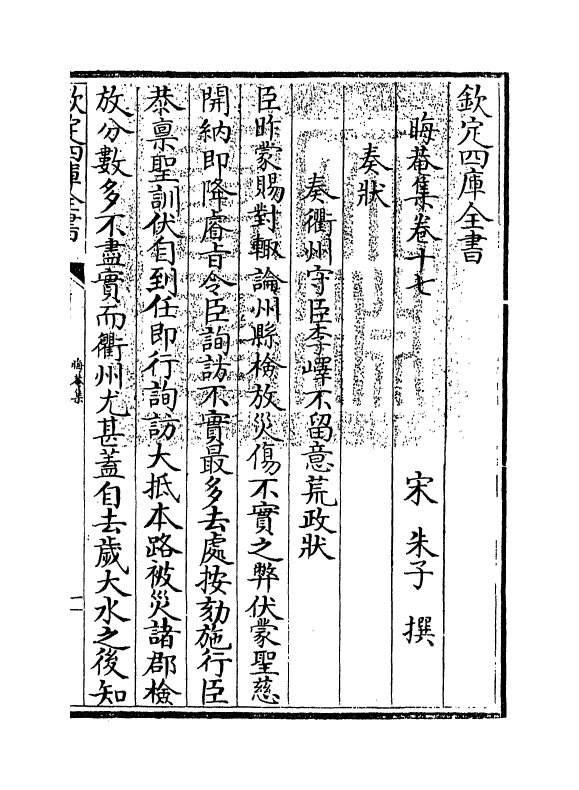 欽定四庫全書
晦菴集卷十七
宋 朱子 撰
奏狀
奏衢州守臣李嶧不留意荒政狀
臣昨蒙賜對輒論州縣檢放災傷不實之弊伏蒙聖慈
開納即降睿旨令臣詢訪不實最多去處按劾施行臣
恭禀聖訓伏自到任即行詢訪大抵本路被災諸郡檢
放分數多不盡實而衢州尤甚蓋自去歲大水之後知
欽定四庫全書
晦菴集